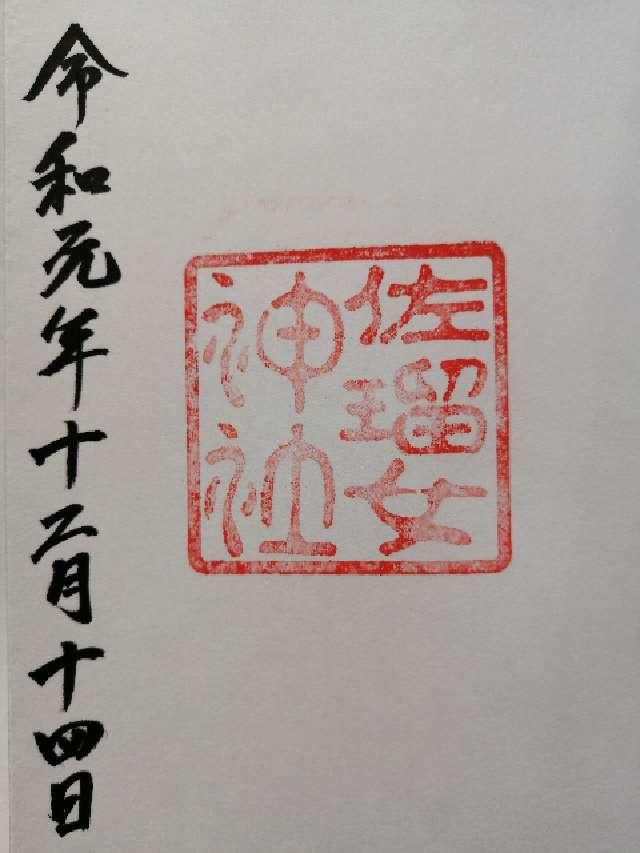 佐瑠女
神社
令和元年十二月十四日